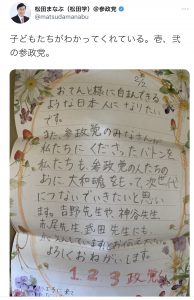 松田まなぶ（松田学）@参政党
@matsudamanabu
子どもたちがわかってくれている。壱、弐
の参政党。
2/2
おてんと様に自まんできる
ような日本人になりたい
です。
また、参政党のみなさんが
私たちにくださったバトンを
私たちも、参政党の人たちの
ように大和魂をもって次世代
につないでいきたいと思い
ます。吉野先生や、神谷先生
赤尾先生、武田先生にも、
よろしくおねがいします。
1 2 3 政党